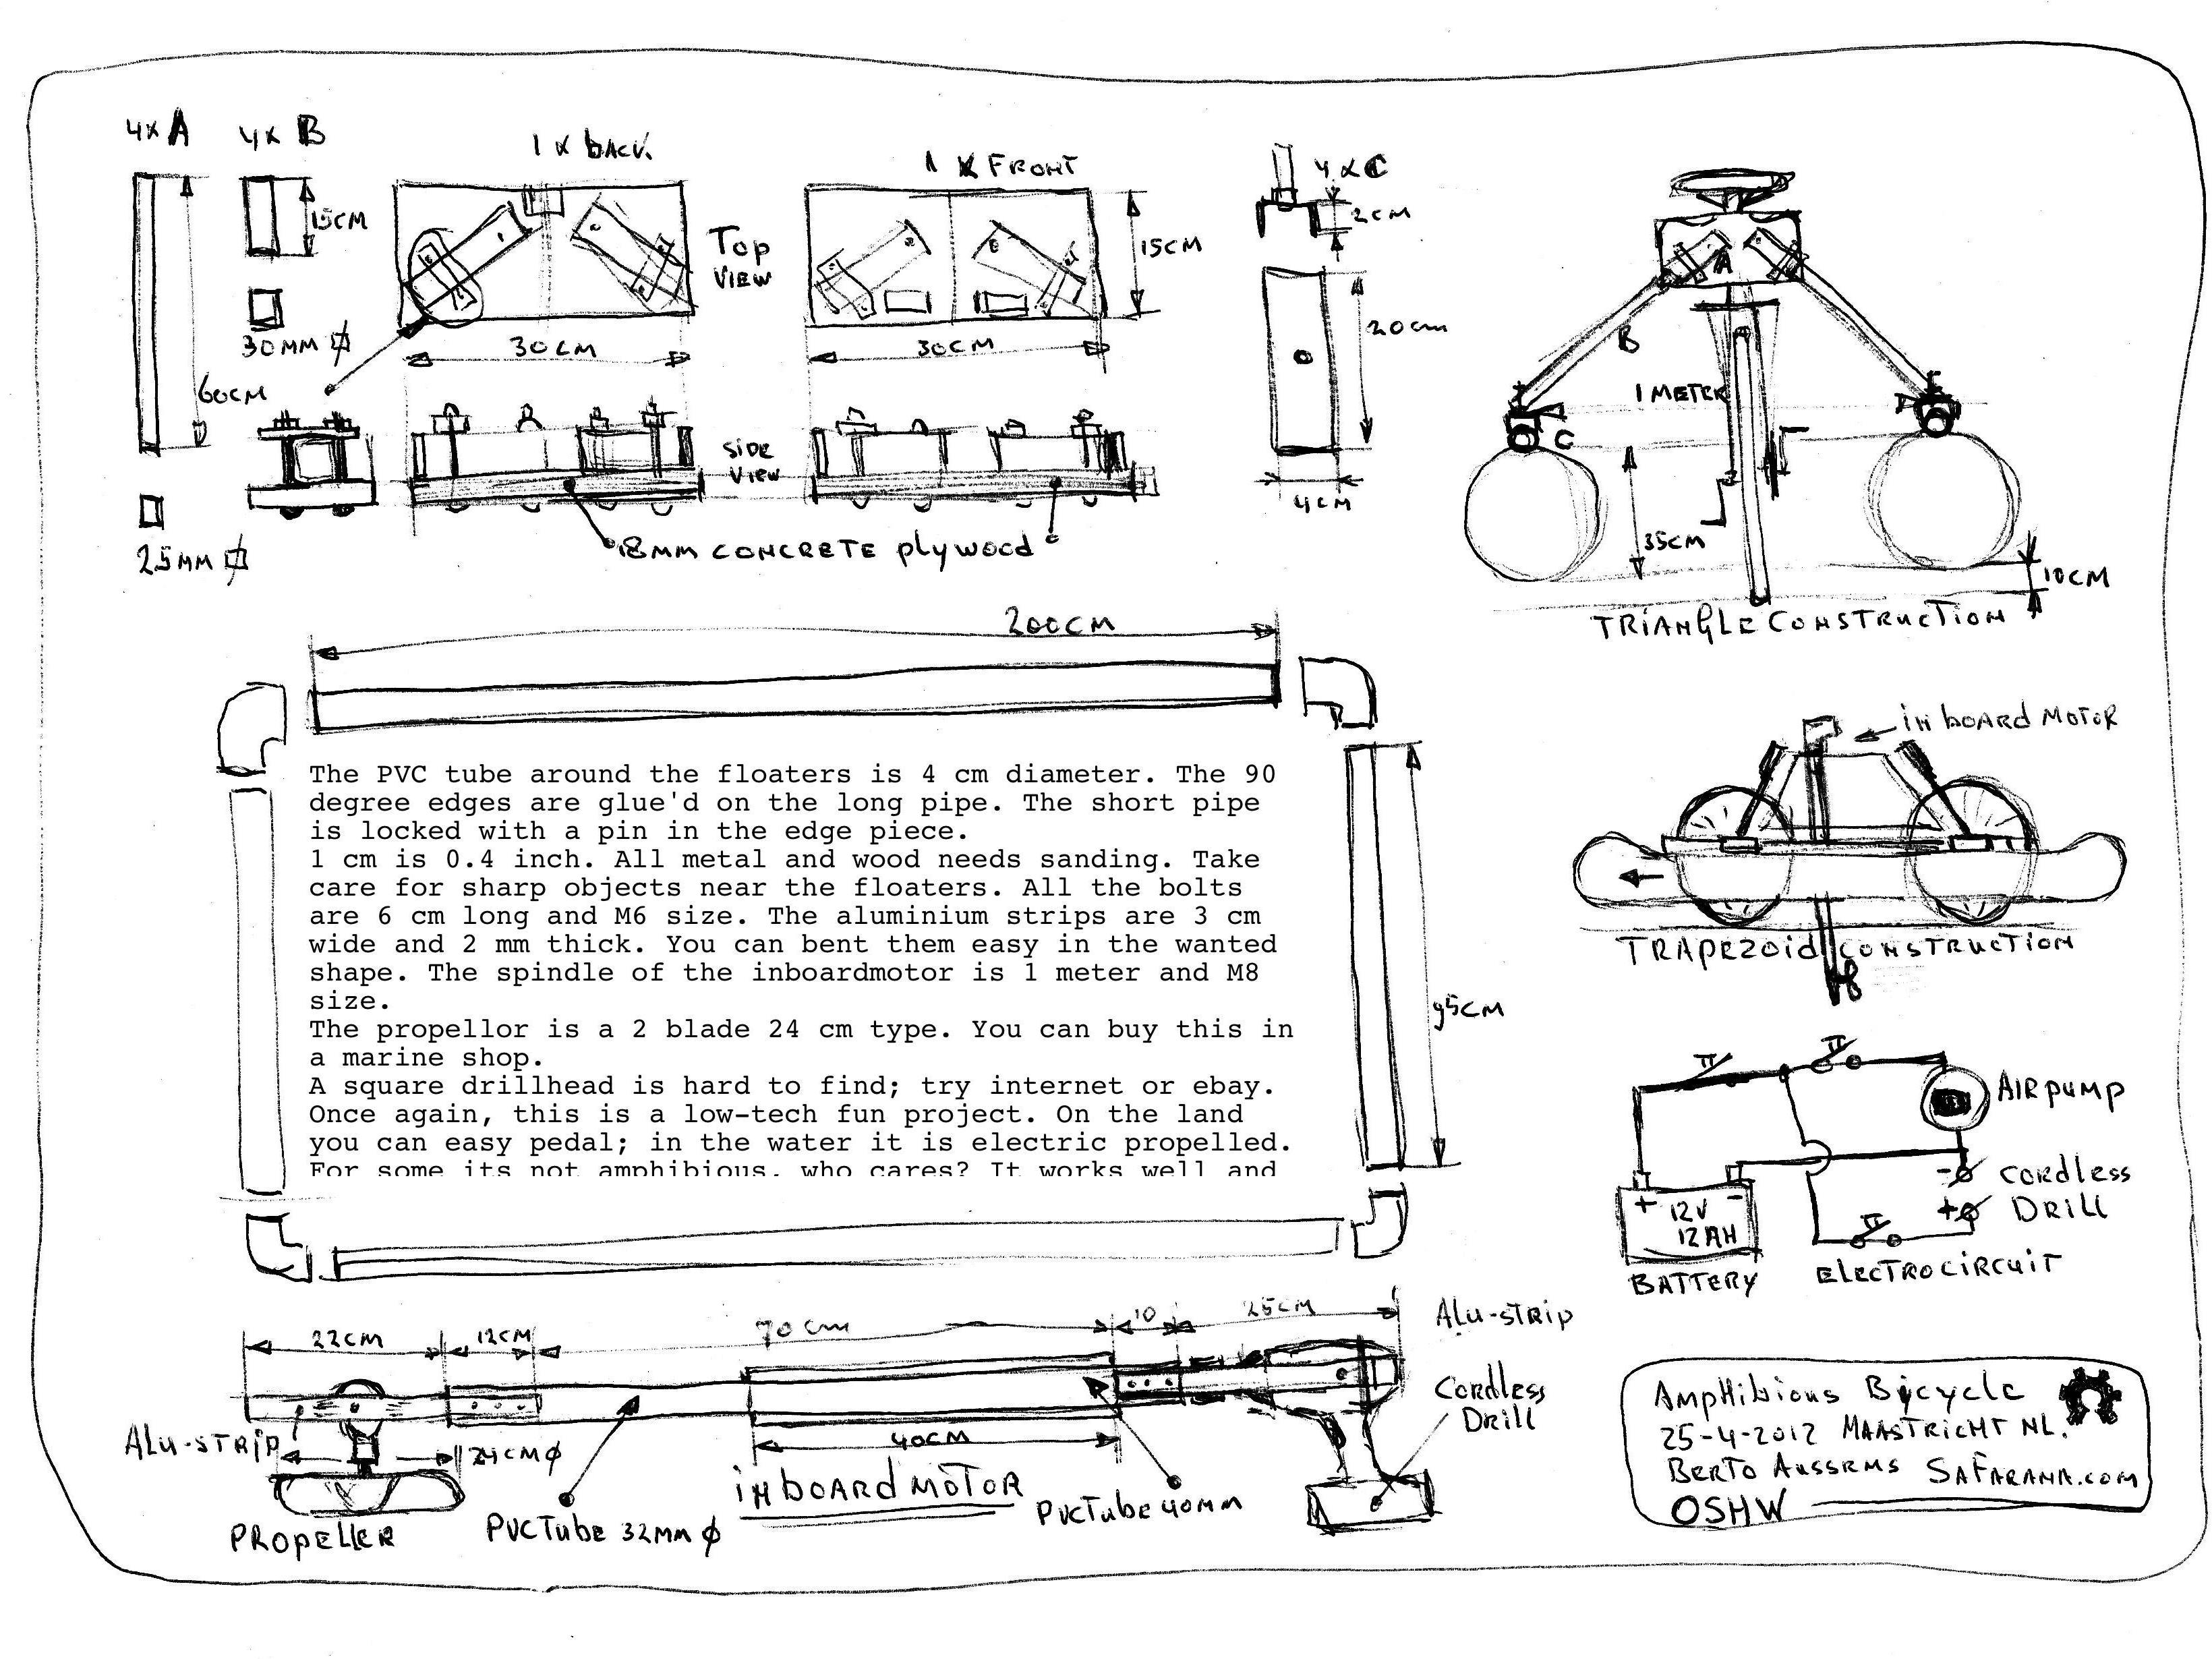 4x A
4x B
1 x BACK.
1 x FRONT
4 x C
15CM
2CM
TOP
VIEW
15CM
30MM
30CM
30CM
20cm
60CM
A
B
1 METER
C
SIDE
VIEW
4CM
35CM
25MM
18MM CONCRETE plywood
10CM
TRIANGLE CONSTRUCTION
200CM
INBOARD MOTOR
The PVC tube around the floaters is 4 cm diameter. The 90
degree edges are glue'd on the long pipe. The short pipe
is locked with a pin in the edge piece.
1 cm is 0.4 inch. All metal and wood needs sanding. Take
care for sharp objects near the floaters. All the bolts
are 6 cm long and M6 size. The aluminium strips are 3 cm
wide and 2 mm thick. You can bent them easy in the wanted
shape. The spindle of the inboardmotor is 1 meter and M8
size.
The propellor is a 2 blade 24 cm type. You can buy this in
a marine shop.
A square drillhead is hard to find; try internet or ebay.
Once again, this is a low-tech fun project. On the land
you can easy pedal; in the water it is electric propelled.
For some its not amphibious, who cares? It works well and
95CM
TRAPEZOID CONSTRUCTION
AIRPUMP
- CORDLESS
+ DRILL
+ -
12V
12AH
BATTERY
ELECTROCIRCUIT
22CM
12CM
70cm
10
25CM
ALU-STRIP
ALU-STRIP
24CM Ø
40CM
CORDLESS
DRILL
PROPELLER
PVCTUBE 32MM Ø
INBOARDMOTOR
PVCTUBE 40MM
AMPHIBIOUS BICYCLE
25-4-2012 MAASTRICHT NL.
BERTO AUSSEMS SAFARAMA.COM
OSHW